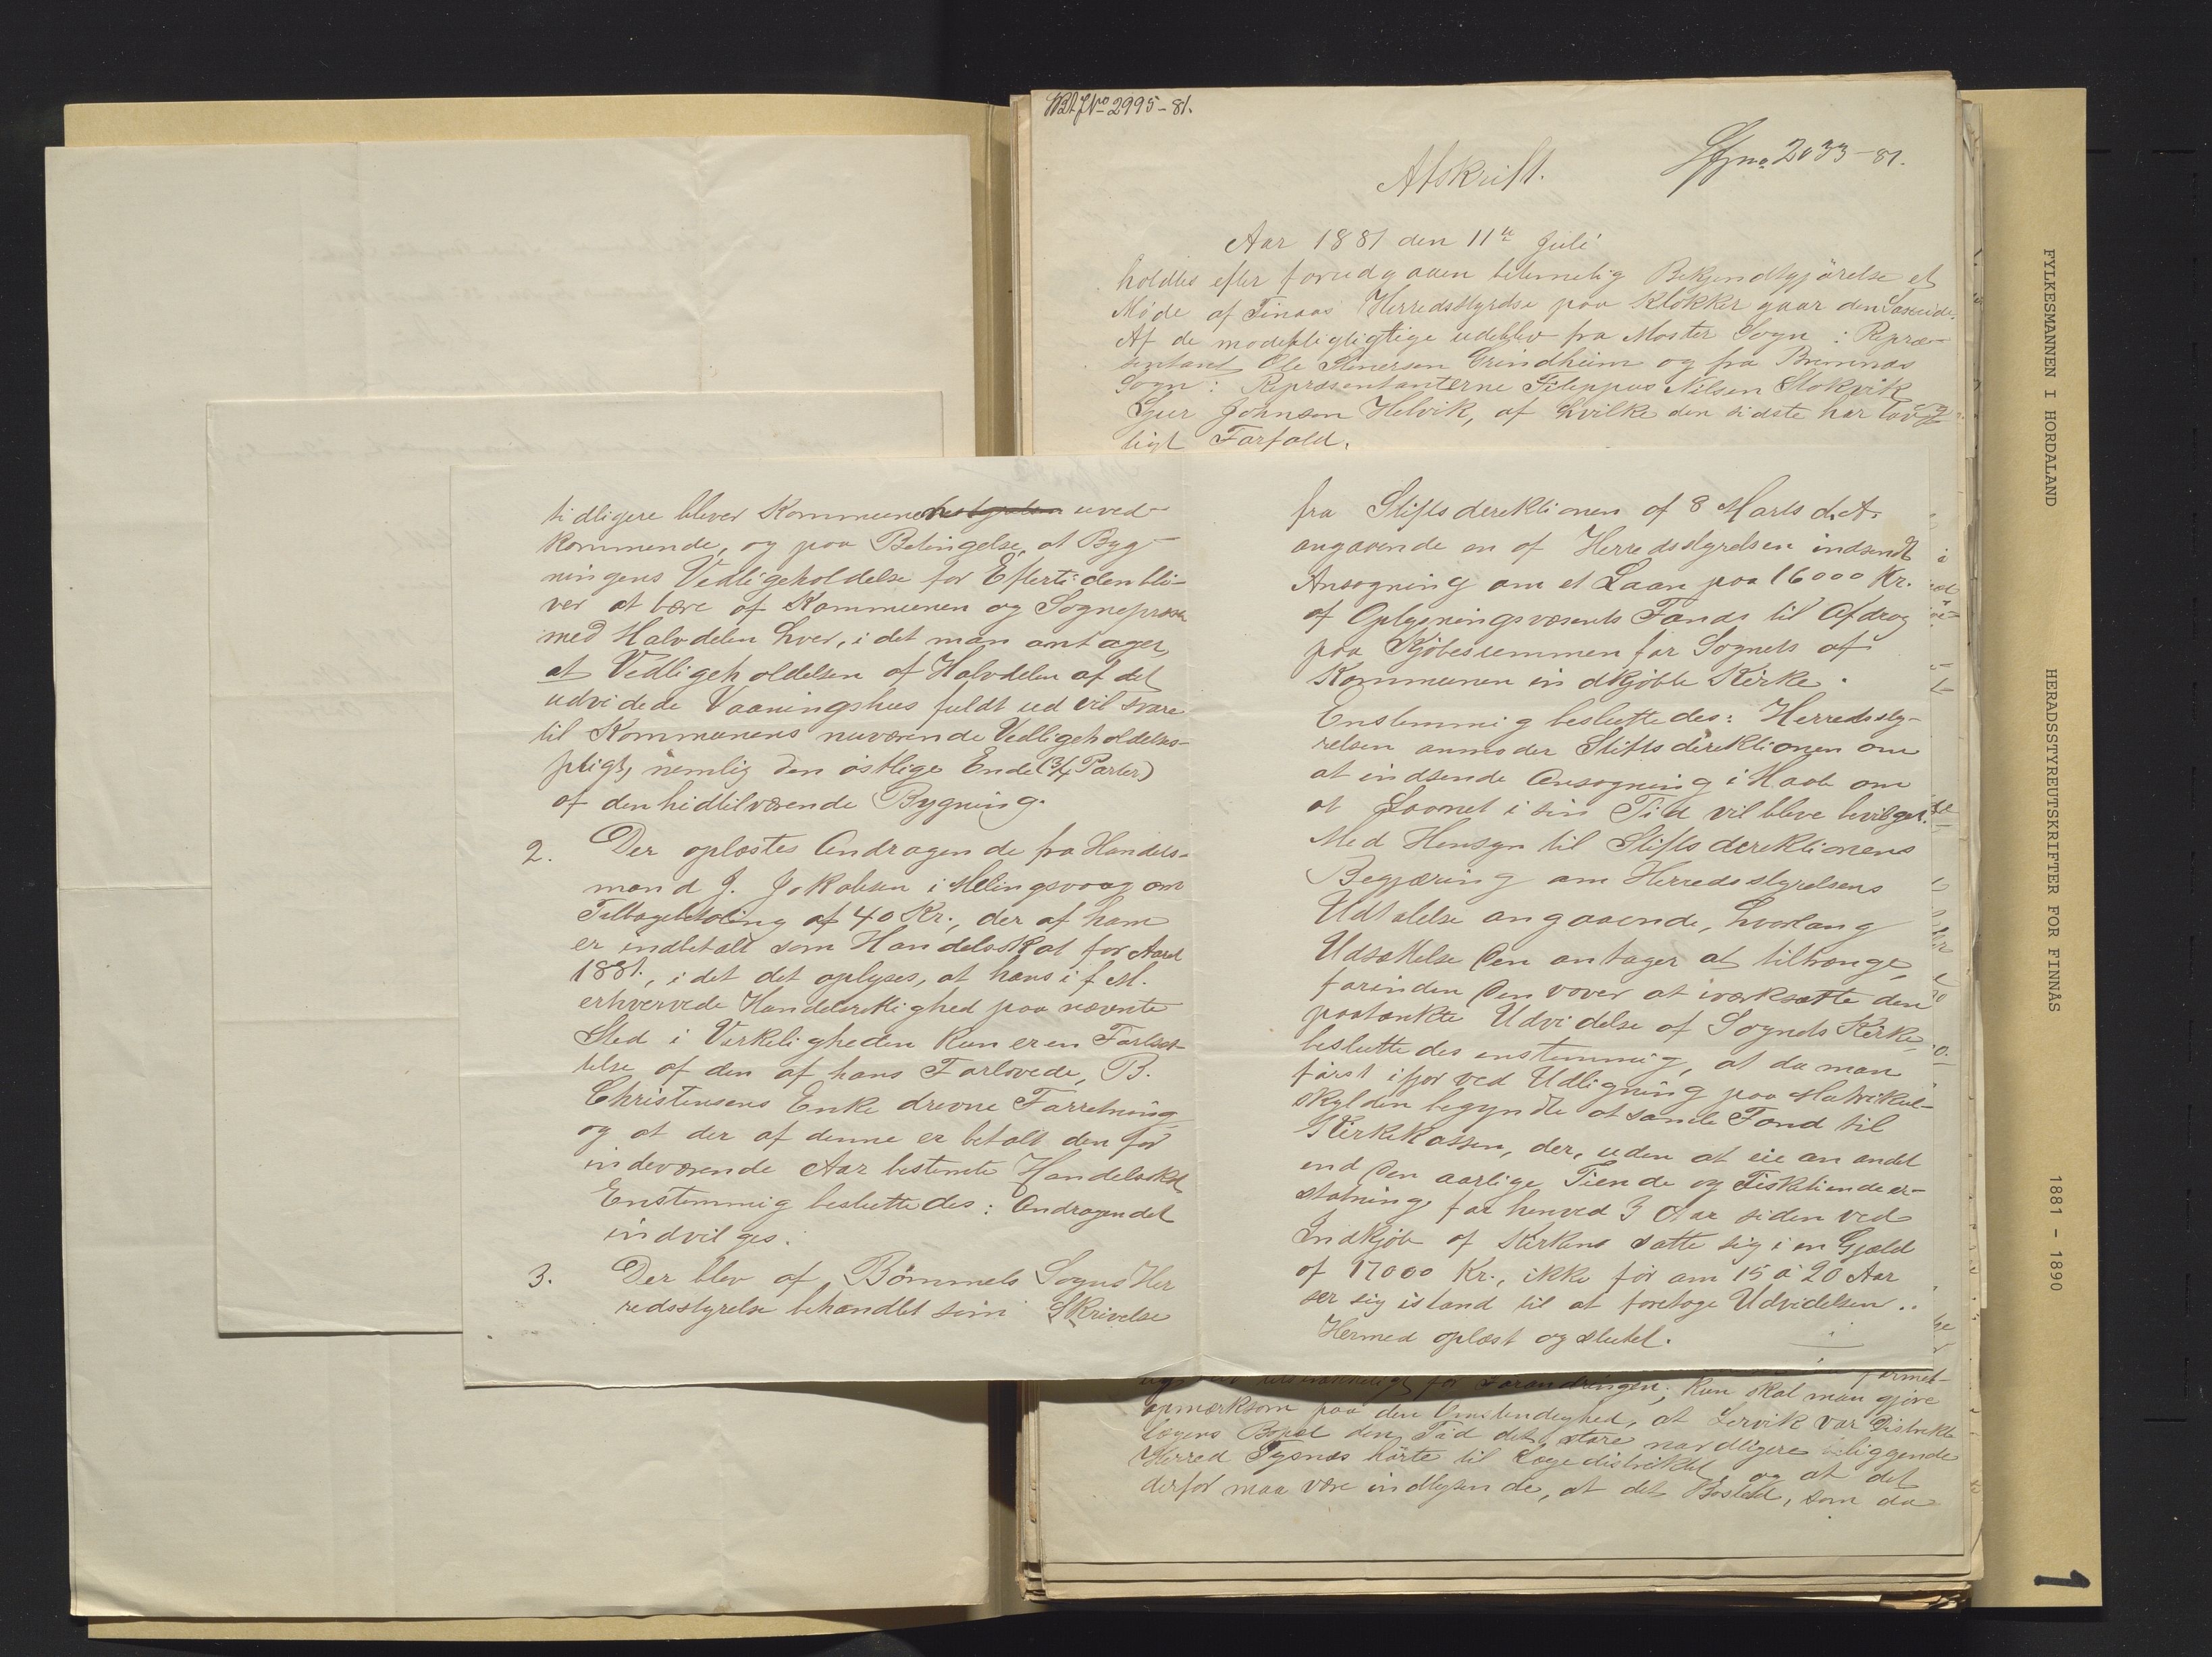 No 2995-81.
Afskrift.
No 2033-81.
Aar 1881 den 11te Juli
holdtes efter forudgaaen betimelig Bekjendtgjörelse et
Møde af Finaas Herredsstyrelse paa Klokker gaarden
Af de modepligtigtige udeblev fra Moster Sogn: Repræ-
sentant Ole Stenersen Grindheim og fra Bremnæs
Sogn: Repræsentanterne Filippus Nilsen Stokvik
Sjur Johnsen Helvik, af hvilke den sidste har lov
ligt Forfald.
tidligere bliver Kommunen uved-
kommende, og paa Betingelse, at Byg-
ningens Vedligeholdelse for Eftertiden bli-
ver at bære af Kommunen og Sognepræsten
med Halvdelen hver, i det man antager,
at Vedligeholdelsen af Halvdelen af det
udvidede Vaaningshus fuldt ud vil svare
til Kommunens nuværende Vedligeholdelses-
pligt, nemlig den østlige Ende (3/4 Parter)
af den hidtilværende Bygning.
2. Der oplæstes Andragende fra Handels-
mand J. Jakobsen i Melingsvaag om
Tilbagebetaling af 40 Kr., der af ham
er indbetalt som Handelsskat for Aaret
1881., i det det oplyses, at hans i f. M.
erhvervede Handelsrettighed paa nævnte
Sted i Virkeligheden kun er en Fortsæt-
telse af den af hans Forlovede, B.
Christensens Enke drevne Forretning
og at der af denne er betalt den for
indeværende Aar bestemte Handelsskat
Enstemmig besluttedes: Andragendet
indvilges.
3. Der blev af Bömmels Sogns Her
redsstyrelse behandlet sim Skrivelse
fra Stiftsdirektionen af 8 Marts d. A.
angaaende en af Herredsstyrelsen indsendt
Ansøgning om et Laan paa 16000 Kr.
af Oplysningsvæsents Fonds til Afdrag
paa Kjøbesummen for Sognets af
Kommunen indkjøbte Kirke.
Enstemmig besluttedes: Herredssty-
relsen anmoder Stiftsdirektionen om
at indsende Ansøgning i Haab om
at Laanet i sin Tid vil bleve bevilget.
Med Hensyn til Stiftsdirektionens
Begjæring om Herredsstyrelsens
Udtalelse angaaende, hvorlang
Udsættelse den antager at tiltrænge,
forinden den vover at iværksætte den
paatænkte Udvidelse af Sognets Kirke,
besluttedes enstemmig, at da man
først ifjor ved Udligning paa Matrikul-
skylden begyndte at samle Fond til
Kirkekassen, der, uden at eie an andet
end den aarlige Tiende og Fisketiendeer-
statning, for henved 3 Aar siden ved
Indkjøb af Kirkens satte sig i en Gjæld
af 17000 Kr., ikke før om 15 à 20 Aar
ser sig istand til at foretage Udvidelsen..
Hermed oplæst og sluttet.
for Forandringen; kun skal man gjøre
opmærksom paa den Omstendighed, at Lervik var Distrikts
lægens Bopæl den Tid det store nordligere beliggende
Herred Tysnæs hørte til Lægedistriktet, og at det
derfor maa være indlysende, at det Bosted, som da
FYLKESMANNEN I HORDALAND
HERADSSTYREUTSKRIFTER FOR FINNÅS
1881 - 1890
1